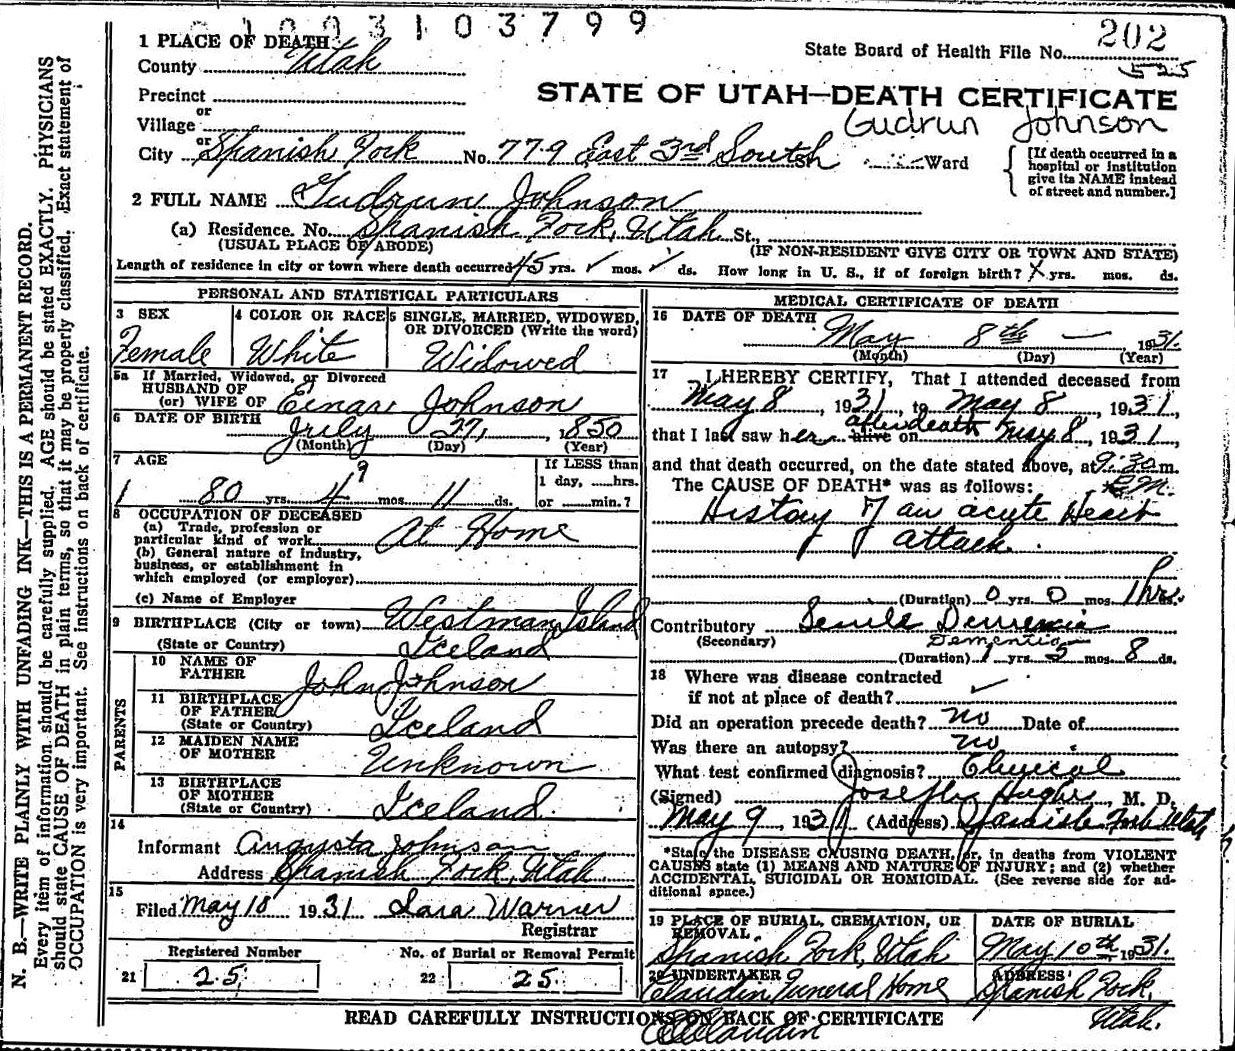 1003103799
202
State Board of Health File No.
525
1 PLACE OF DEATH
County Utah
STATE OF UTAH—DEATH CERTIFICATE
Precinct
or
Village
Gudrun Johnson
or
City Spanish Fork No. 779 East 3rd South Ward
[If death occurred in a hospital or institution give its NAME instead of street and number.]
2 FULL NAME Gudrun Johnson
(a) Residence. No. Spanish Fork, Utah St.,
(USUAL PLACE OF ABODE) (IF NON-RESIDENT GIVE CITY OR TOWN AND STATE)
Length of residence in city or town where death occurred 45 yrs. ✓ mos. ✓ ds. How long in U. S., if of foreign birth? X yrs. mos. ds.
PERSONAL AND STATISTICAL PARTICULARS
3 SEX 4 COLOR OR RACE 5 SINGLE, MARRIED, WIDOWED,
OR DIVORCED (Write the word)
Female White Widowed
5a If Married, Widowed, or Divorced
HUSBAND OF
(or) WIFE OF Einar Johnson
6 DATE OF BIRTH July 27, 1850
(Month) (Day) (Year)
7 AGE
If LESS than
1 day, hrs.
or min.?
80 yrs. 9 mos. 11 ds.
8 OCCUPATION OF DECEASED
(a) Trade, profession or
particular kind of work At Home
(b) General nature of industry,
business, or establishment in
which employed (or employer)
(c) Name of Employer
9 BIRTHPLACE (City or town) Westman Island
(State or Country) Iceland
PARENTS
10 NAME OF
FATHER John Johnson
11 BIRTHPLACE
OF FATHER
(State or Country) Iceland
12 MAIDEN NAME
OF MOTHER Unknown
13 BIRTHPLACE
OF MOTHER
(State or Country) Iceland
14
Informant Augusta Johnson
Address Spanish Fork, Utah
15
Filed May 10 1931 Sara Warner
Registrar
Registered Number No. of Burial or Removal Permit
21 25 22 25
MEDICAL CERTIFICATE OF DEATH
16 DATE OF DEATH
May 8th 1931.
(Month) (Day) (Year)
17 I HEREBY CERTIFY, That I attended deceased from
May 8, 1931, to May 8, 1931,
after death
that I last saw her alive on May 8, 1931,
and that death occurred, on the date stated above, at 9:30 m.
P.M.
The CAUSE OF DEATH* was as follows:
History of an acute Heart
attack.
(Duration) 0 yrs. 0 mos. 1 hrs.
Contributory Senile Demencia
(Secondary) Dementia
(Duration) 1 yrs. 5 mos. 8 ds.
18 Where was disease contracted
if not at place of death? ✓
Did an operation precede death? no Date of
Was there an autopsy? no
What test confirmed diagnosis? Clinical
(Signed) Joseph Hughes, M. D.
May 9, 1931 (Address) Spanish Fork Utah
*State the DISEASE CAUSING DEATH, or, in deaths from VIOLENT
CAUSES state (1) MEANS AND NATURE OF INJURY; and (2) whether
ACCIDENTAL, SUICIDAL OR HOMICIDAL. (See reverse side for ad-
ditional space.)
19 PLACE OF BURIAL, CREMATION, OR REMOVAL DATE OF BURIAL
Spanish Fork, Utah May 10th, 1931.
20 UNDERTAKER ADDRESS
Claudin Funeral Home Spanish Fork,
Utah.
READ CAREFULLY INSTRUCTIONS ON BACK OF CERTIFICATE
Claudin
N. B.—WRITE PLAINLY WITH UNFADING INK—THIS IS A PERMANENT RECORD.
Every item of information should be carefully supplied. AGE should be stated EXACTLY. PHYSICIANS
should state CAUSE OF DEATH in plain terms, so that it may be properly classified. Exact statement of
OCCUPATION is very important. See instructions on back of certificate.